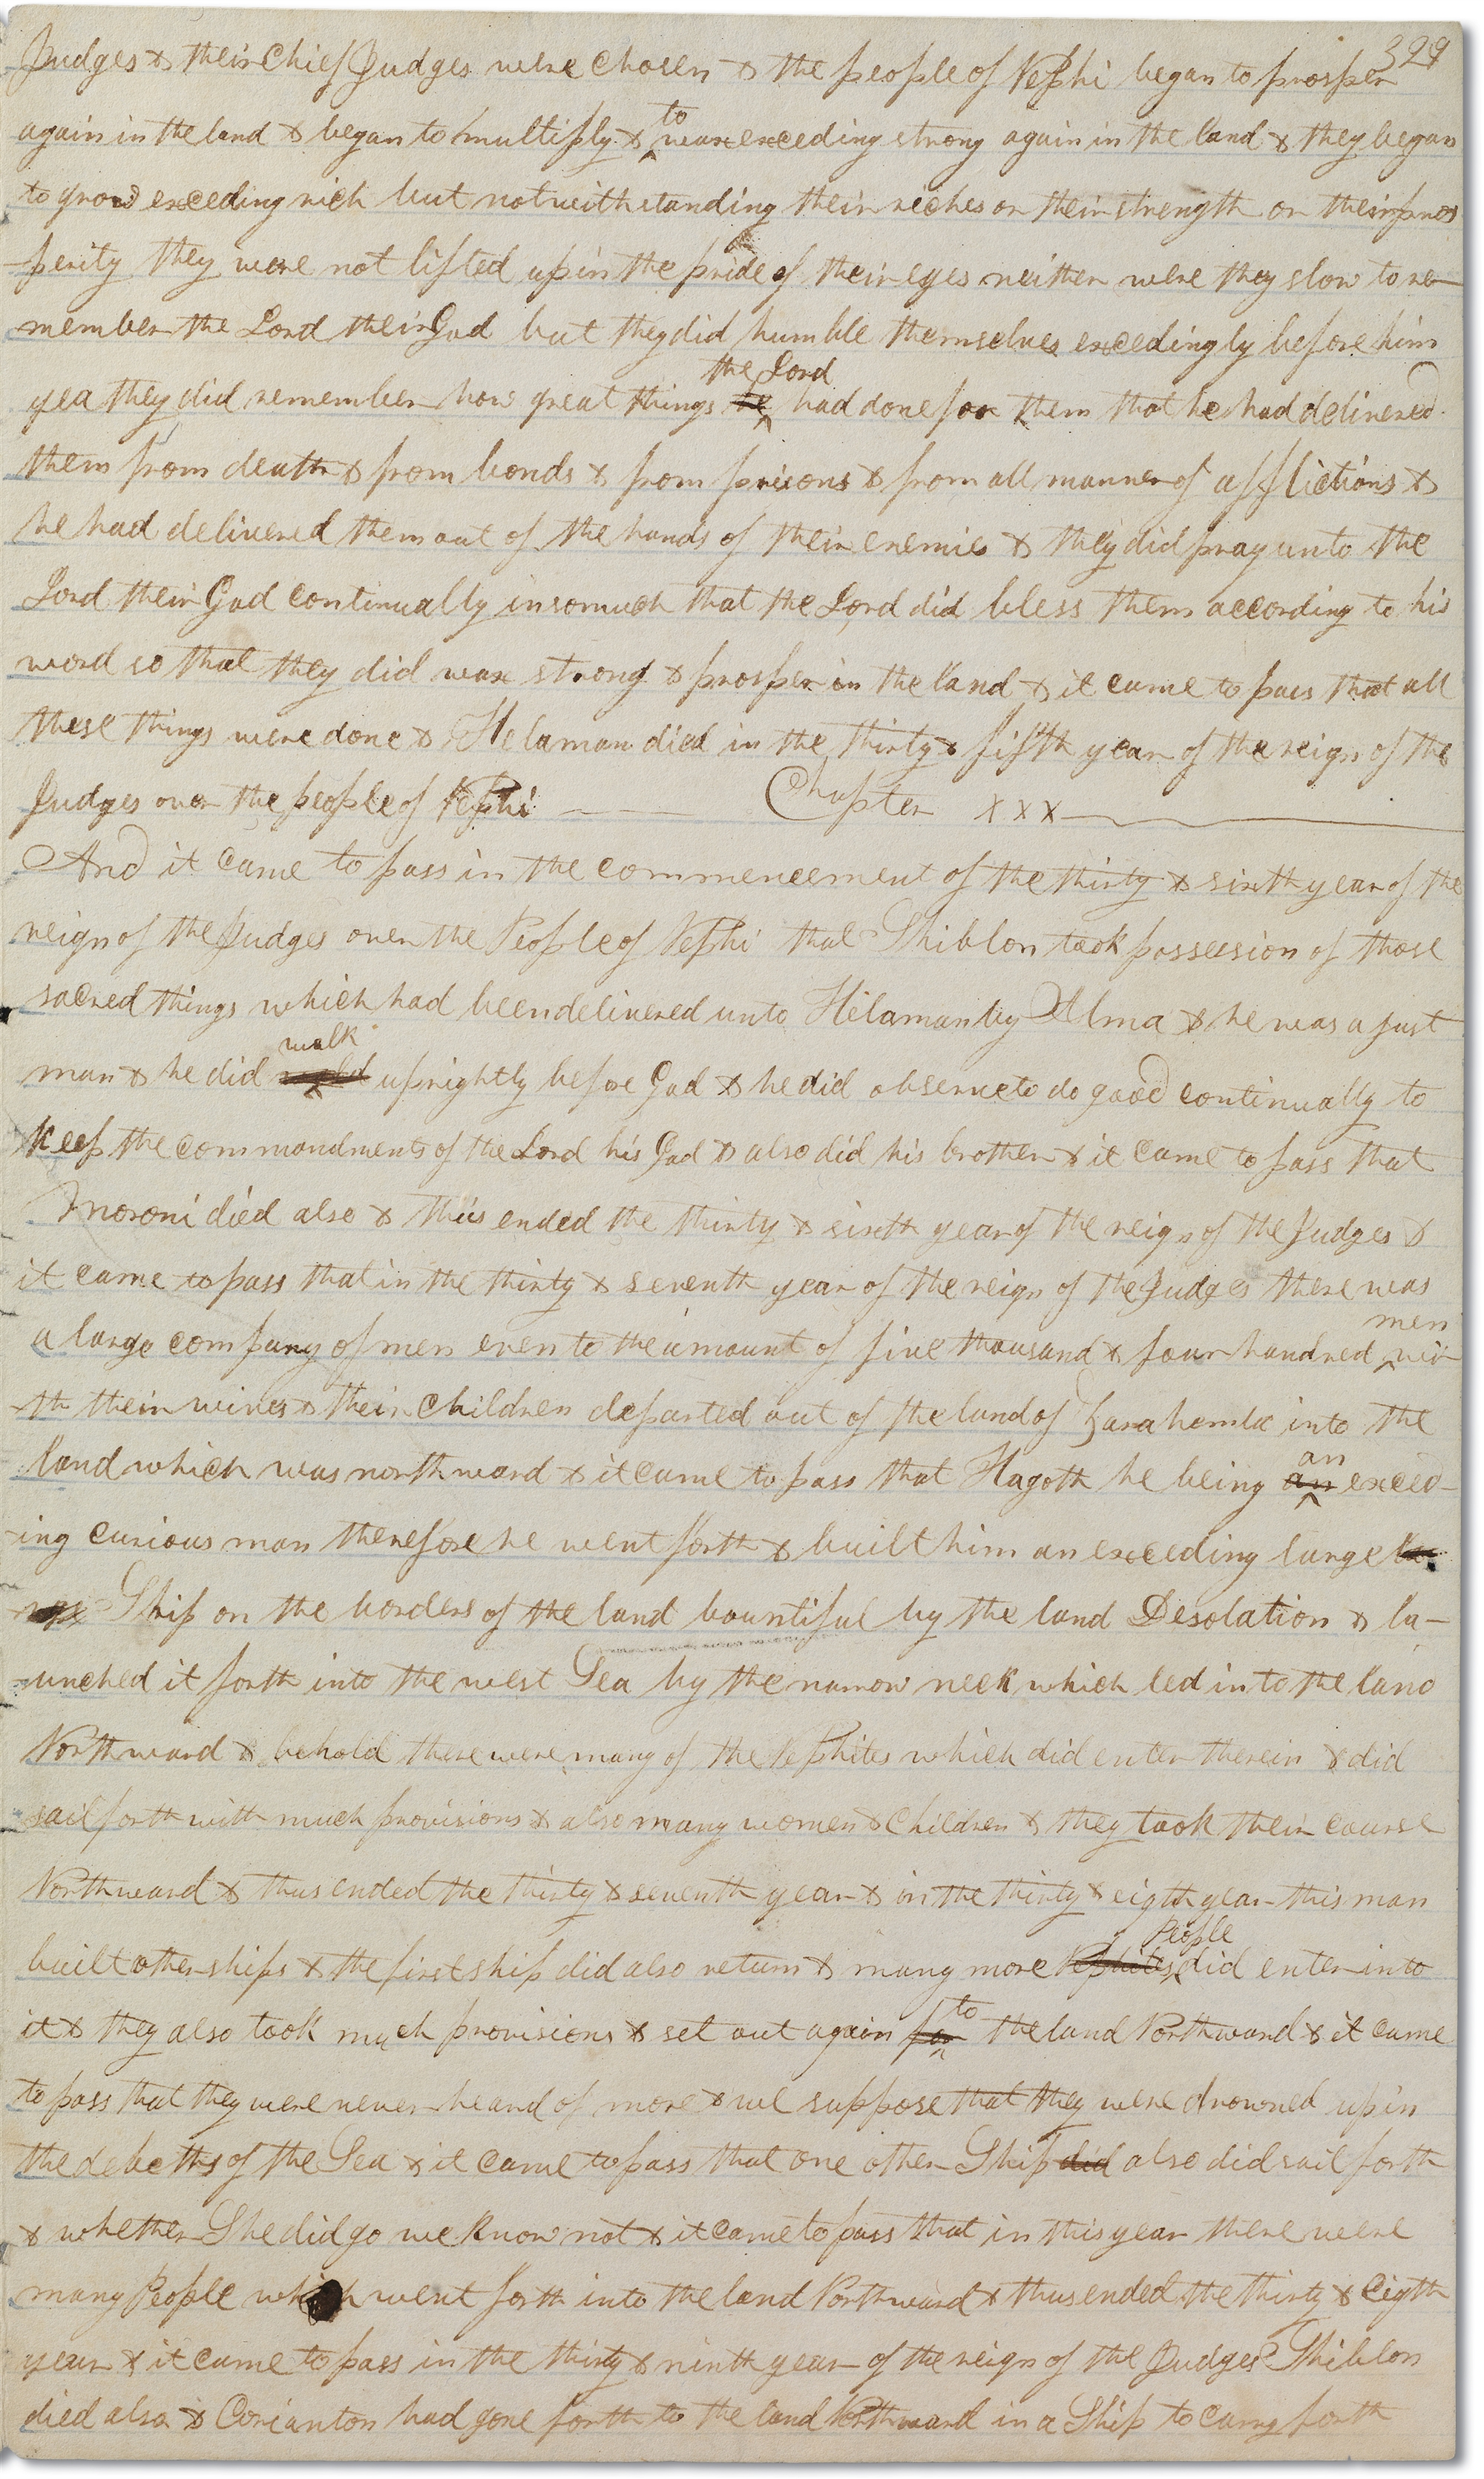 329
Judges & their Chief Judges were chosen & the people of Nephi began to prosper
again in the land & began to multiply & to wax exceding strong again in the land & they began
to grow exceding rich but notwithstanding their riches or their strength or their pros
-perity they were not lifted up in the pride of their eyes neither were they slow to re-
member the Lord their God but they did humble themselves excedingly before him
yea they did remember how great things he the Lord had done for them that he had delivered
them from death & from bonds & from prisons & from all manner of afflictions &
he had delivered them out of the hands of their enemies & they did pray unto the
Lord their God continually insomuch that the Lord did bless them according to his
word so that they did wax strong & prosper in the land & it came to pass that all
these things were done & Helaman died in the thirty & fifth year of the reign of the
Judges over the people of Nephi — — Chapter XXX
And it came to pass in the commencement of the thirty & sixth year of the
reign of the Judges over the People of Nephi that Shiblon took possession of those
sacred things which had been delivered unto Helaman by Alma & he was a just
man & he did walk uprightly before God & he did observe to do good continually to
keep the commandments of the Lord his God & also did his brother & it came to pass that
Moroni died also & thus ended the thirty & sixth year of the reign of the Judges &
it came to pass that in the thirty & seventh year of the reign of the Judges there was
a large company of men even to the amount of five thousand & four hundred men wi-
-th their wives & their children departed out of the land of Zarahemla into the
land which was northward & it came to pass that Hagoth he being an an exced-
-ing curious man therefore he went forth & built him an exceding large la
-rge Ship on the borders of the land bountiful by the land Desolation & la-
-unched it forth into the west Sea by the narrow neck which led into the land
Northward & behold there were many of the Nephites which did enter therein & did
sail forth with much provisions & also many women & children & they took their course
Northward & thus ended the thirty & seventh year & in the thirty & eigth year this man
built other ships & the first ship did also return & many more Nephites People did enter into
it & they also took much provisions & set out again for to the land Northward & it came
to pass that they were never heard of more & we suppose that they were drowned up in
the debths of the Sea & it came to pass that one other Ship did also did sail forth
& whether She did go we know not & it came to pass that in this year there were
many People which went forth into the land Northward & thus ended the thirty & eigth
year & it came to pass in the thirty & ninth year of the reign of the Judges Shiblon
died also & Corianton had gone forth to the land Northward in a Ship to carry forth